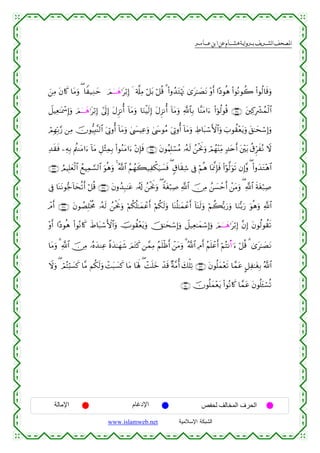 المصحف الشريف برواية هشام عن ابن عامر
وَقَالُوا۟ كُونُوا۟ هُودًا أَوْ نَصَـٰرَىٰ تَهْتَدُوا۟ ۗ قُلْ بَلْ مِلَّةَ إِبْرَٰهَـٰمَ حَنِيفًا ۖ وَمَا كَانَ مِنَ
ٱلْمُشْرِكِينَ قُولُوٓا۟ ءَامَنَّا بِٱللَّهِ وَمَآ أُنزِلَ إِلَيْنَا وَمَآ أُنزِلَ إِلَىٰٓ إِبْرَٰهَـٰمَ وَإِسْمَـٰعِيلَ
وَإِسْحَـٰقَ وَيَعْقُوبَ وَٱلْأَسْبَاطِ وَمَآ أُوتِىَ مُوسَىٰ وَعِيسَىٰ وَمَآ أُوتِىَ ٱلنَّبِيُّونَ مِن رَّبِّهِمْ
لَا نُفَرِّقُ بَيْنَ أَحَدٍ مِّنْهُمْ وَنَحْنُ لَهُۥ مُسْلِمُونَ فَإِنْ ءَامَنُوا۟ بِمِثْلِ مَآ ءَامَنتُم بِهِۦ فَقَدِ
ٱهْتَدَوا۟ ۖ وَّإِن تَوَلَّوْا۟ فَإِنَّمَا هُمْ فِى شِقَاقٍ ۖ فَسَيَكْفِيكَهُمُ ٱللَّهُ ۚ وَهُوَ ٱلسَّمِيعُ ٱلْعَلِيمُ
صِبْغَةَ ٱللَّهِ ۖ وَمَنْ أَحْسَنُ مِنَ ٱللَّهِ صِبْغَةً ۖ وَنَحْنُ لَهُۥ عَـٰبِدُونَ قُلْ أَتُحَآجُّونَنَا فِى
ٱللَّهِ وَهُوَ رَبُّنَا وَرَبُّكُمْ وَلَنَآ أَعْمَـٰلُنَا وَلَكُمْ أَعْمَـٰلُكُمْ وَنَحْنُ لَهُۥ مُخْلِصُونَ أَمْ
يَقُولُونَ إِنَّ إِبْرَٰهَـٰمَ وَإِسْمَـٰعِيلَ وَإِسْحَـٰقَ وَيَعْقُوبَ وَٱلْأَسْبَاطَ كَانُوا۟ هُودًا أَوْ
نَصَـٰرَىٰ ۗ قُلْ ءَا۬نتُمْ أَعْلَمُ أَمِ ٱللَّهُ ۗ وَمَنْ أَظْلَمُ مِمَّن كَتَمَ شَهَـٰدَةً عِندَهُۥ مِنَ ٱللَّهِ ۗ وَمَا
ٱللَّهُ بِغَـٰفِلٍ عَمَّا تَعْمَلُونَ تِلْكَ أُمَّةٌ قَدْ خَلَتْ ۖ لَهَا مَا كَسَبَتْ وَلَكُم مَّا كَسَبْتُمْ ۖ وَلَا
تُسْـَٔلُونَ عَمَّا كَانُوا۟ يَعْمَلُونَ
الحرف المخالف لحفص الإدغام الإمالة
الشبكة الإسلامية www.islamweb.net